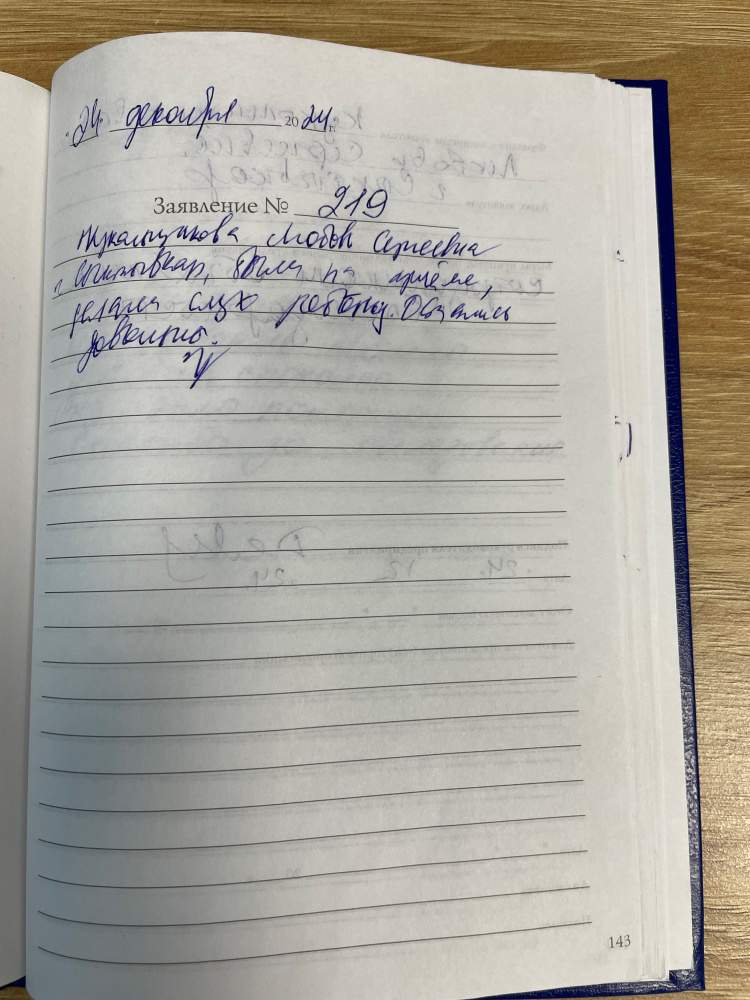 "24" декабря 2024 г.
Заявление № 219
Любовь Сергеевна
г. Сыктывкар, были на приёме,
делали слух ребёнку. Остались
довольны.
143